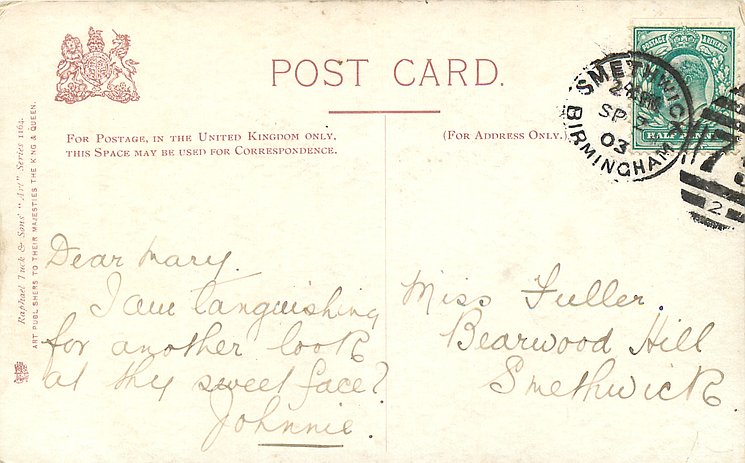 POST CARD.
FOR POSTAGE, IN THE UNITED KINGDOM ONLY,
THIS SPACE MAY BE USED FOR CORRESPONDENCE.
(FOR ADDRESS ONLY.
Raphael Tuck & Sons' "Art" Series 1164.
ART PUBLISHERS TO THEIR MAJESTIES THE KING & QUEEN.
POSTAGE & REVENUE
HALF PENNY
SMETHWICK
SP
03
BIRMINGHAM
2
Dear Mary.
I am languishing
for another look
at thy sweet face?
Johnnie.
Miss Fuller.
Bearwood Hill
Smethwick